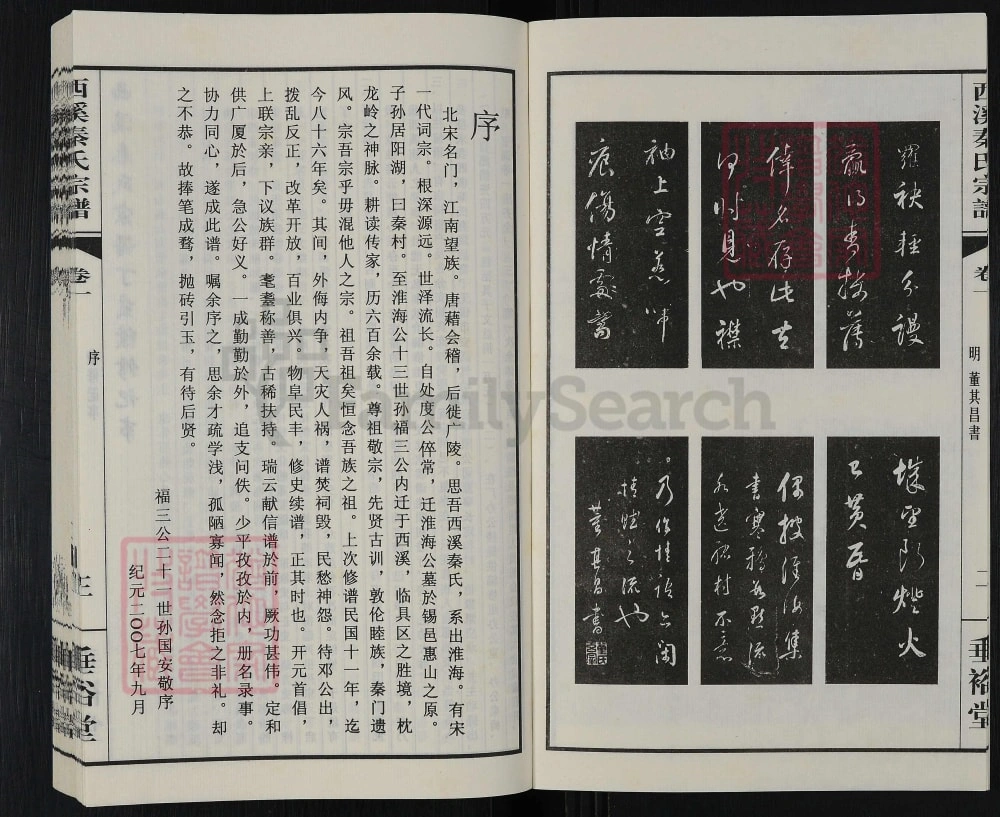 西溪秦氏宗譜
卷一
明 董其昌書
二
垂裕堂
羅袂輕分謾
贏得青樓薄
倖名存此去
何時見也襟
袖上空惹啼
痕傷情處高
城望斷燈火
已黄昏
偶披淮海集
書寒鴉數點流
水遶孤村不意
乃作情語亦閑
情賦之流也
董其昌書
序
北宋名门,江南望族。唐藉会稽,后徙广陵。思吾西溪秦氏,系出淮海。有宋
一代词宗。根深源远。世泽流长。自处度公倅常,迁淮海公墓於锡邑惠山之原。
子孙居阳湖,曰秦村。至淮海公十三世孙福三公内迁于西溪,临具区之胜境,枕
龙岭之神脉。耕读传家,历六百余载。尊祖敬宗,先贤古训,敦伦睦族,秦门遗
风。宗吾宗乎毋混他人之宗。祖吾祖矣恒念吾族之祖。上次修谱民国十一年,迄
今八十六年矣。其间,外侮内争,天灾人祸,谱焚祠毁,民愁神怨。待邓公出,
拨乱反正,改革开放,百业俱兴。物阜民丰,修史续谱,正其时也。开元首倡,
上联宗亲,下议族群。耄耋称善,古稀扶持。瑞云献信谱於前,厥功甚伟。定和
供广厦於后,急公好义。一成勤勤於外,追支问佚。少平孜孜於内,册名录事。
协力同心,遂成此谱。嘱余序之,思余才疏学浅,孤陋寡闻,然念拒之非礼。却
之不恭。故捧笔成骛,抛砖引玉,有待后贤。
福三公二十一世孙国安敬序
纪元二〇〇七年九月
西溪秦氏宗譜
卷一
序
三
垂裕堂
FamilySearch